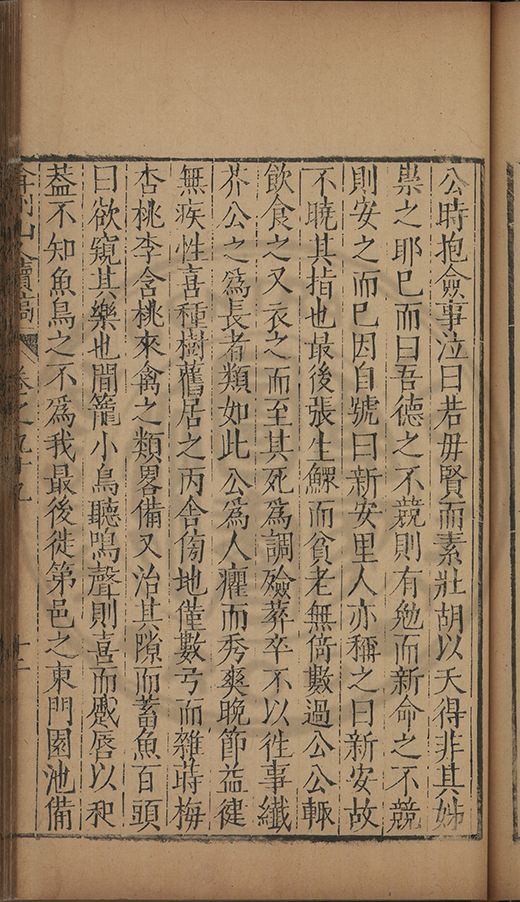 公時抱斂事泣曰若毋賢而素壯胡以夭得非其姊
祟之耶已而曰吾德之不競則有勉而新命之不競
則安之而已因自號曰新安里人亦稱之曰新安故
不曉其指也最後張生鰥而貧老無倚數過公公輒
飲食之又衣之而至其死為調殮葬卒不以徃事纖
芥公之為長者類如此公為人癯而秀爽晚節益健
無疾性喜種樹舊居之丙舍傍地僅數弓而雜蒔梅
杏桃李含桃來禽之類畧備又治其隙而蓄魚百頭
曰欲窺其樂也間籠小鳥聽鳴聲則喜而蹙唇以和
葢不知魚鳥之不為我最後徙第邑之東門園池備
弇州山人續稿 卷之九十九 十二